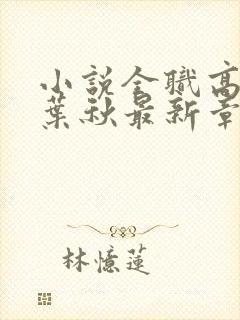 小說全職高
葉秋最新章
林憶蓮